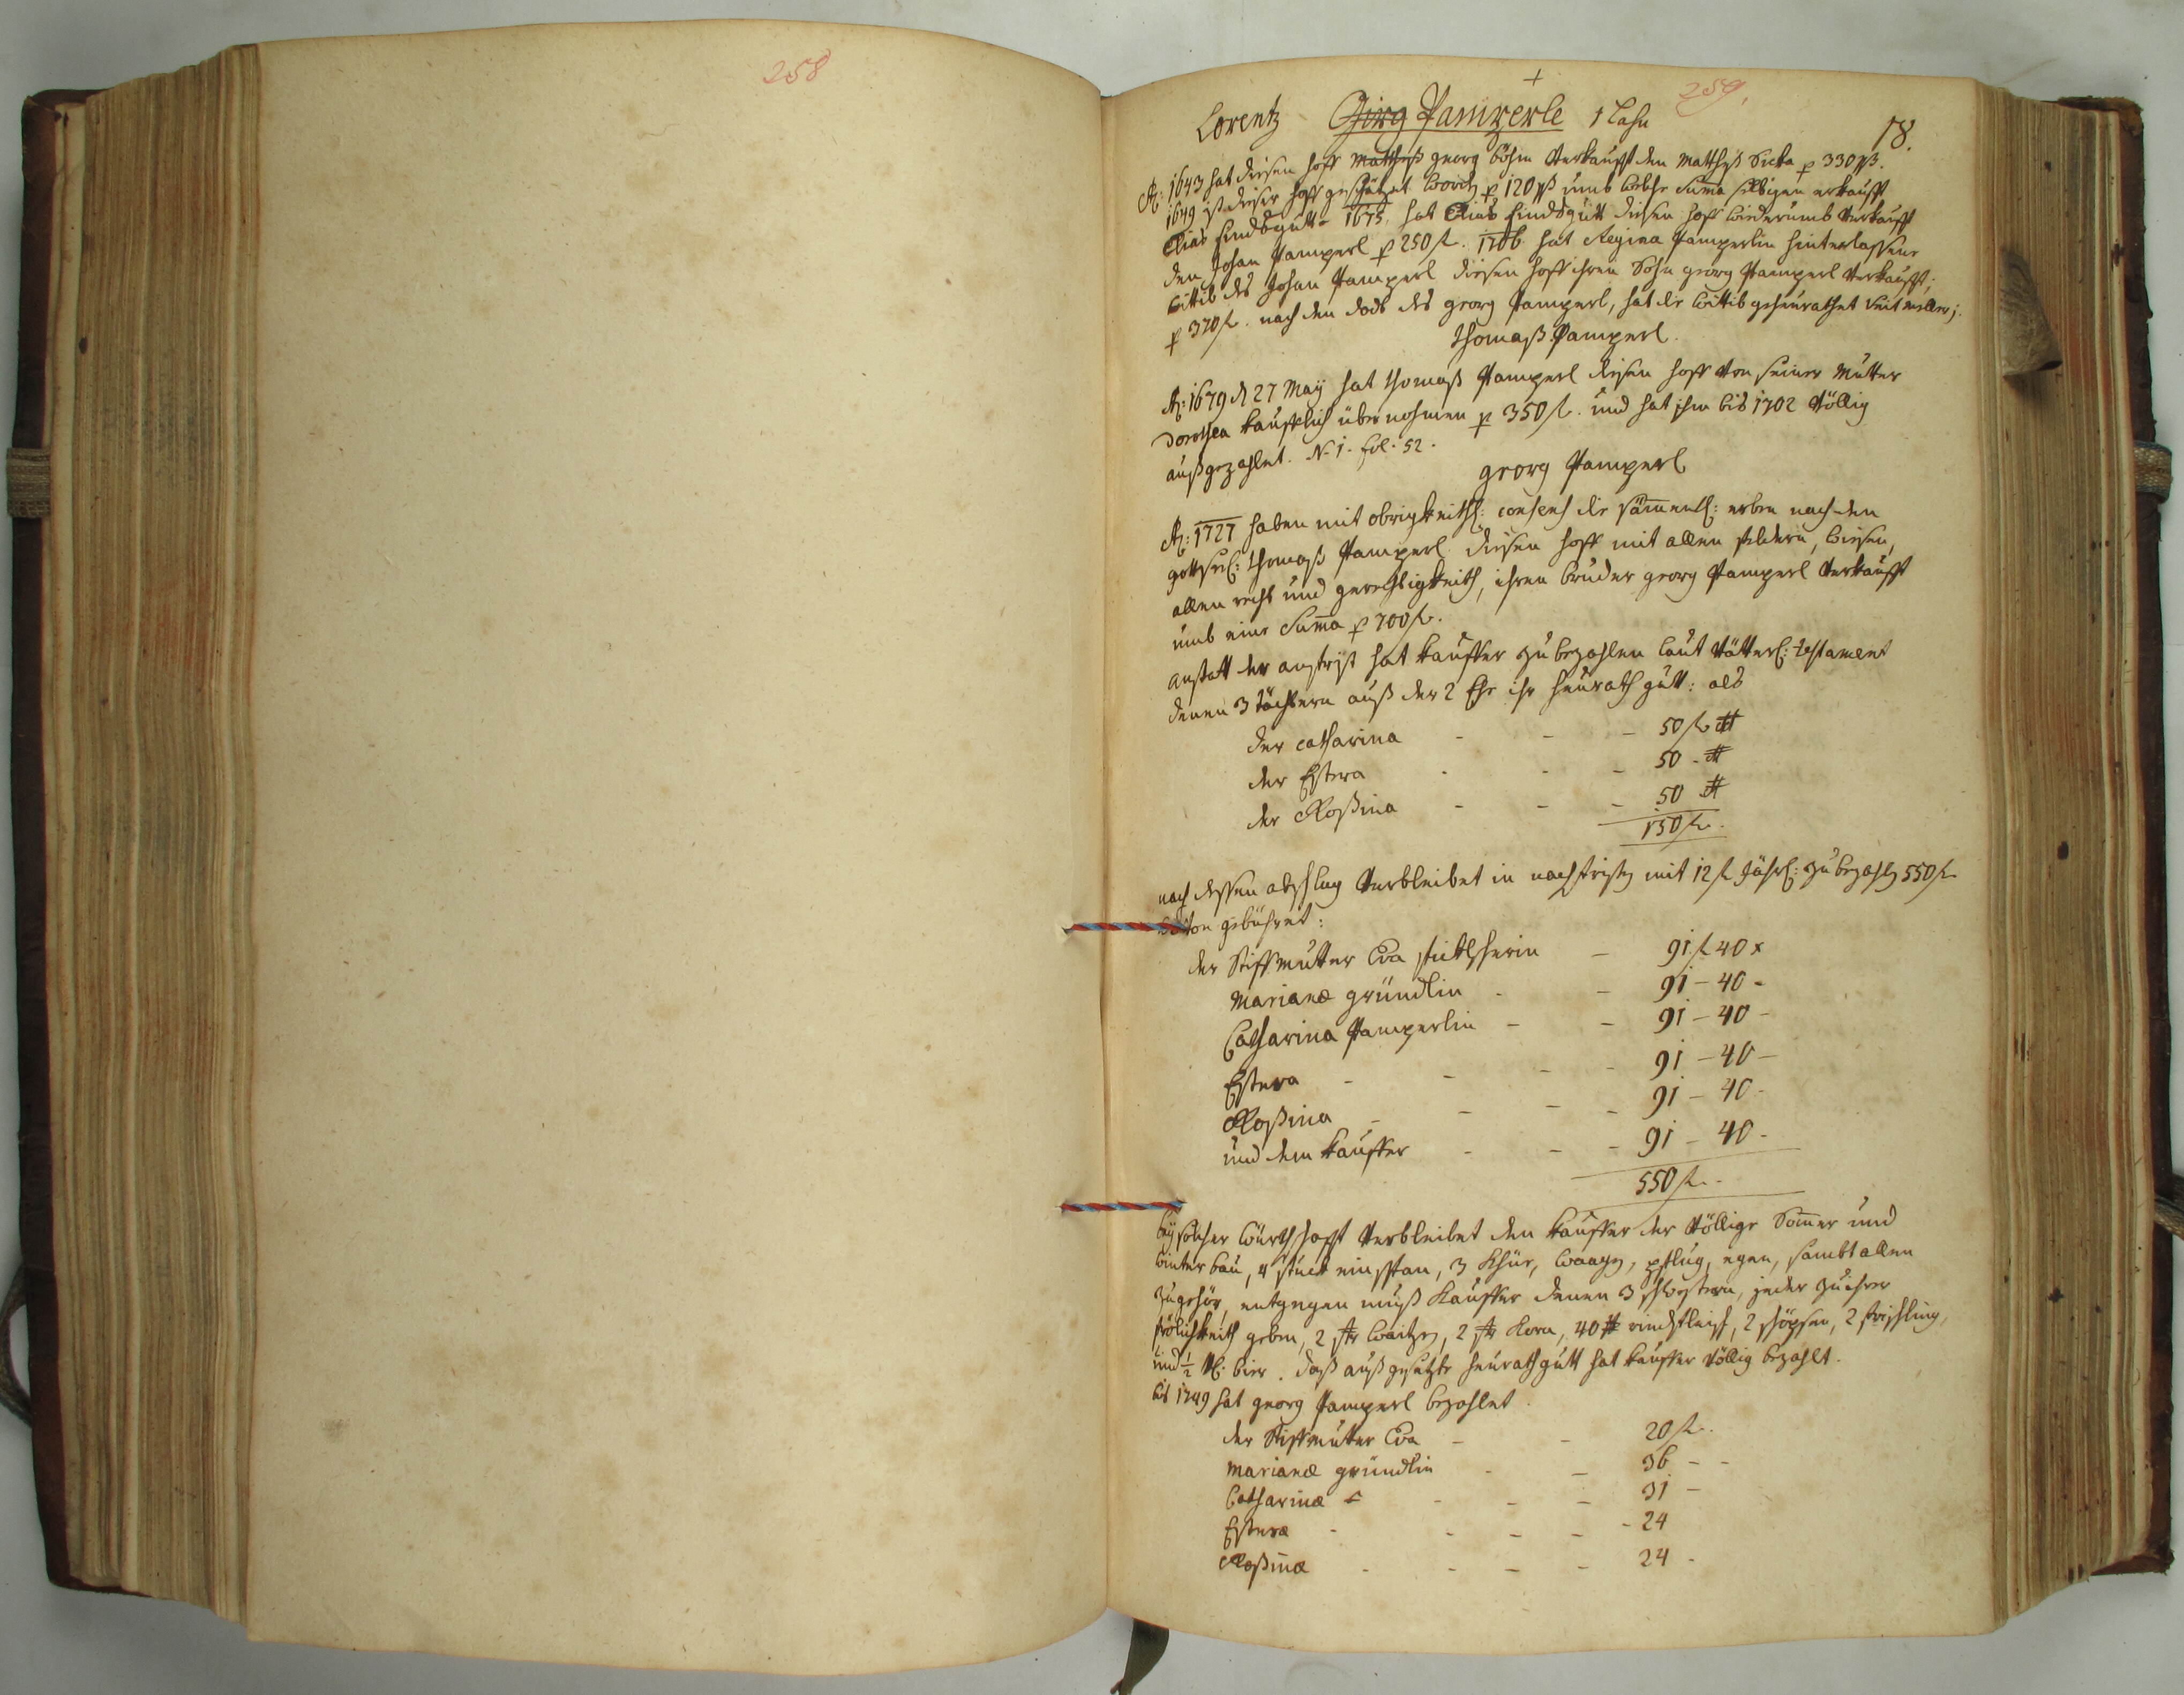 258
259.
Lorentz Girg Pamperle 1 Lahn
18.
Ao: 1643 hat diesen hoff Mattheß georg Böhm Verkaufft dem Matthß Sicka p 330 ß.
1649 ist dieser hoff geschätzet word p 120 ß umb welche Suma selbigen erkaufft
Elias Findsgutt. 1675. hat Elias Findsgutt diesen hoff wiederumb Verkaufft
den Johan Pamperl p 250 f. 1706 hat Regina Pamperlin hinterlassene
Wittib des Johan Pamperl diesen hoff ihren Sohn georg Pamperl Verkaufft;
p 370 f. nach den Todt des georg Pamperl, hat die Wittib geheurathet Veit
Thomaß Pamperl.
Ao: 1679 d 27 May hat Thomaß Pamperl diesen hoff Von seiner Mutter
Dorothea kaufflich übernohmen p 350 f. und hat ihm bis 1702 Völlig
außgezahlet. N. 1. fol. 52.
georg Pamperl
Ao: 1727 haben mit obrigkeitl: consens die sämmentl: erben nach den
gottseel: Thomaß Pamperl diesen hoff mit allen feldern, Wiesen,
allen recht und gerechtigkeith, ihren bruder georg Pamperl Verkaufft
umb eine Suma p 700 f.
anstatt der angfrist hat kauffer zu bezahlen laut Vätterl: testament
denen 3 töchtern auß der 2 Ehe ihr heurath gutt: als
der catharina - - - 50 f #
der Estera - - - 50 - #
der Roßina - - - 50 #
150 f.
nach dessen abschlag Verbleibet in nachfristen mit 12 f Jährl: zu bezahlen 550 f
gebühret:
der Stiffmutter Eva - 91 f 40 x
Marianæ gründlin - - 91 - 40 -
Catharina Pamperlin - - 91 - 40 -
Estera - - - - 91 - 40 -
Roßina - - - - 91 - 40 -
und dem kauffer - - - 91 - 40 -
550 f.
bey solcher Würthschafft Verbleibet den kauffer der Völlige Somer und
Winter bau, 4 stuck einspan, 3 Khüe, Waagen, pflug, egen, sambt allen
zugehör, entgegen muß Kauffer denen 3 schwestern, jeder zu ihrer
frölichkeith geben, 2 str Waitzen, 2 str Korn, 40 # rindtfleisch, 2 schöpsen, 2 frischling,
und 1/2 Vl. bier. daß außgesetzte heurathgutt hat kauffer Völlig bezahlt.
bis 1749 hat georg Pamperl bezahlet.
der Stiffmutter Eva - - 20 f.
Marianæ gründlin - - 36 - -
Catharinæ - - - 31 -
Esteræ - - - - - 24
Roßinæ - - - - 24 -